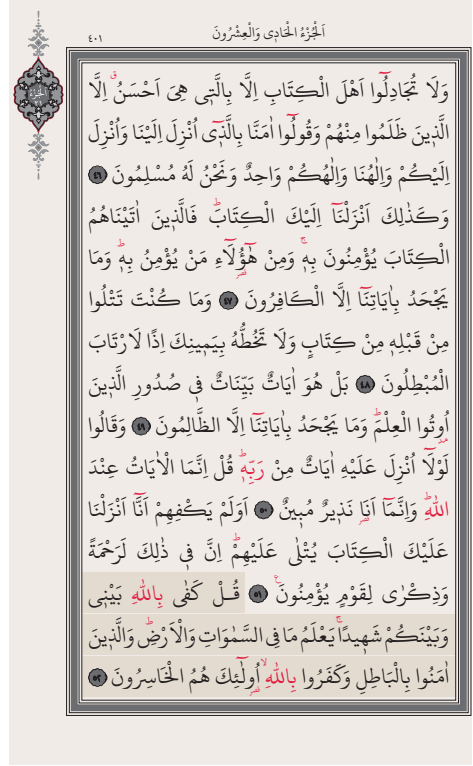 اَلْجُزْءُ الْحَادِى وَالْعِشْرُونَ
٤٠١
وَلَا تُجَادِلُٓوا اَهْلَ الْكِتَابِ اِلَّا بِالَّتٖى هِىَ اَحْسَنُۗ اِلَّا
الَّذٖينَ ظَلَمُوا مِنْهُمْ وَقُولُٓوا اٰمَنَّا بِالَّذٖٓى اُنْزِلَ اِلَيْنَا وَاُنْزِلَ
اِلَيْكُمْ وَاِلٰهُنَا وَاِلٰهُكُمْ وَاحِدٌ وَنَحْنُ لَهُ مُسْلِمُونَ ٤٦
وَكَذٰلِكَ اَنْزَلْنَٓا اِلَيْكَ الْكِتَابَؕ فَالَّذٖينَ اٰتَيْنَاهُمُ
الْكِتَابَ يُؤْمِنُونَ بِهٖۚ وَمِنْ هٰٓؤُ۬لَٓاءِ مَنْ يُؤْمِنُ بِهٖؕ وَمَا
يَجْحَدُ بِاٰيَاتِنَٓا اِلَّا الْكَافِرُونَ ٤٧ وَمَا كُنْتَ تَتْلُوا
مِنْ قَبْلِهٖ مِنْ كِتَابٍ وَلَا تَخُطُّهُ بِيَمٖينِكَ اِذًا لَارْتَابَ
الْمُبْطِلُونَ ٤٨ بَلْ هُوَ اٰيَاتٌ بَيِّنَاتٌ فٖى صُدُورِ الَّذٖينَ
اُو۫تُوا الْعِلْمَؕ وَمَا يَجْحَدُ بِاٰيَاتِنَٓا اِلَّا الظَّالِمُونَ ٤٩ وَقَالُوا
لَوْلَٓا اُنْزِلَ عَلَيْهِ اٰيَاتٌ مِنْ رَبِّهٖؕ قُلْ اِنَّمَا الْاٰيَاتُ عِنْدَ
اللّٰهِؕ وَاِنَّمَٓا اَنَا۬ نَذٖيرٌ مُبٖينٌ ٥٠ اَوَلَمْ يَكْفِهِمْ اَنَّٓا اَنْزَلْنَا
عَلَيْكَ الْكِتَابَ يُتْلٰى عَلَيْهِمْؕ اِنَّ فٖى ذٰلِكَ لَرَحْمَةً
وَذِكْرٰى لِقَوْمٍ يُؤْمِنُونَ۟ ٥١ قُلْ كَفٰى بِاللّٰهِ بَيْنٖى
وَبَيْنَكُمْ شَهٖيدًاۚ يَعْلَمُ مَا فِى السَّمٰوَاتِ وَالْاَرْضِؕ وَالَّذٖينَ
اٰمَنُوا بِالْبَاطِلِ وَكَفَرُوا بِاللّٰهِۙ اُو۬لٰٓئِكَ هُمُ الْخَاسِرُونَ ٥٢